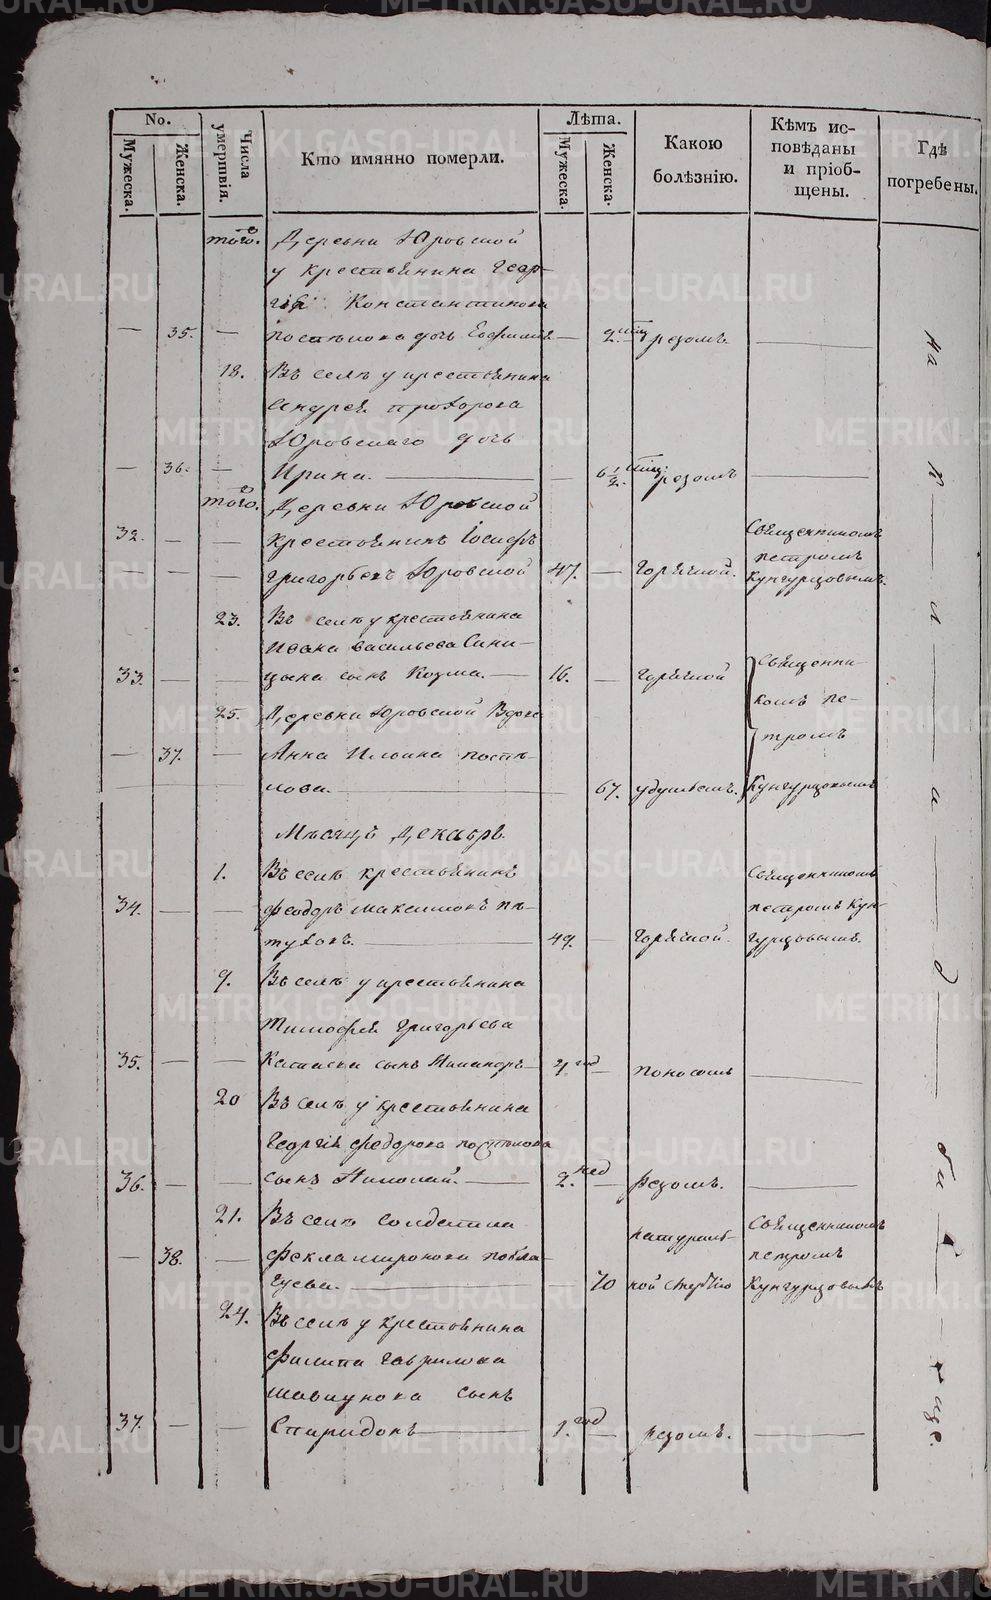 No.
Мужеска.
Женска.
Числа умертвія.
Кто имянно померли.
Лѣта.
Мужеска.
Женска.
Какою болѣзнію.
Кѣмъ ис-
повѣданы
и пріоб-
щены.
Гдѣ
погребены.
того.
Деревни Юровской
у крестьянина Геор-
гія Константинова
35. Постылова дочь
резомъ.
18. Въ селѣ у крестьянина
Андрея Прохорова
Юровскаго дочь
36. Ирина. 6 1/2 резомъ
того. Деревни Юровской
32. крестьянинъ Іосифъ
Священникомъ
Петромъ
Григорьевъ Юровской 47. Горячкой. Кунгурцовымъ.
23. Въ селѣ у крестьянина
Ивана Васильева Сини-
33. цына сынъ Козма. 16. Горячкой
Священни-
комъ Пе-
тромъ
Кунгурцовымъ
25. Деревни Юровской Вдова
37. Анна Ильина Посты-
лова. 67. удушьемъ.
Мѣсяцъ Декабрь
1. Въ селѣ крестьянинъ Священникомъ
34. Феодоръ Максимовъ Пѣ- Петромъ Кун-
туховъ. 49. Горячкой. гурцовымъ.
9. Въ селѣ у крестьянина
Тимофея Григорьева
35. сынъ Никаноръ 4 год поносомъ
20 Въ селѣ у крестьянина
Георгія Федорова Постылова
36. сынъ Николай. 2. нед резомъ.
21. Въ селѣ солдатка натураль- Священникомъ
38. Фекла Миронова Петромъ
70 ной смертію Кунгурцовымъ
24. Въ селѣ у крестьянина
Филипа Гаврилова
сынъ
37. Спиридонъ 1. год резомъ.
на кладбище.
METRIKI.GASO-URAL.RU